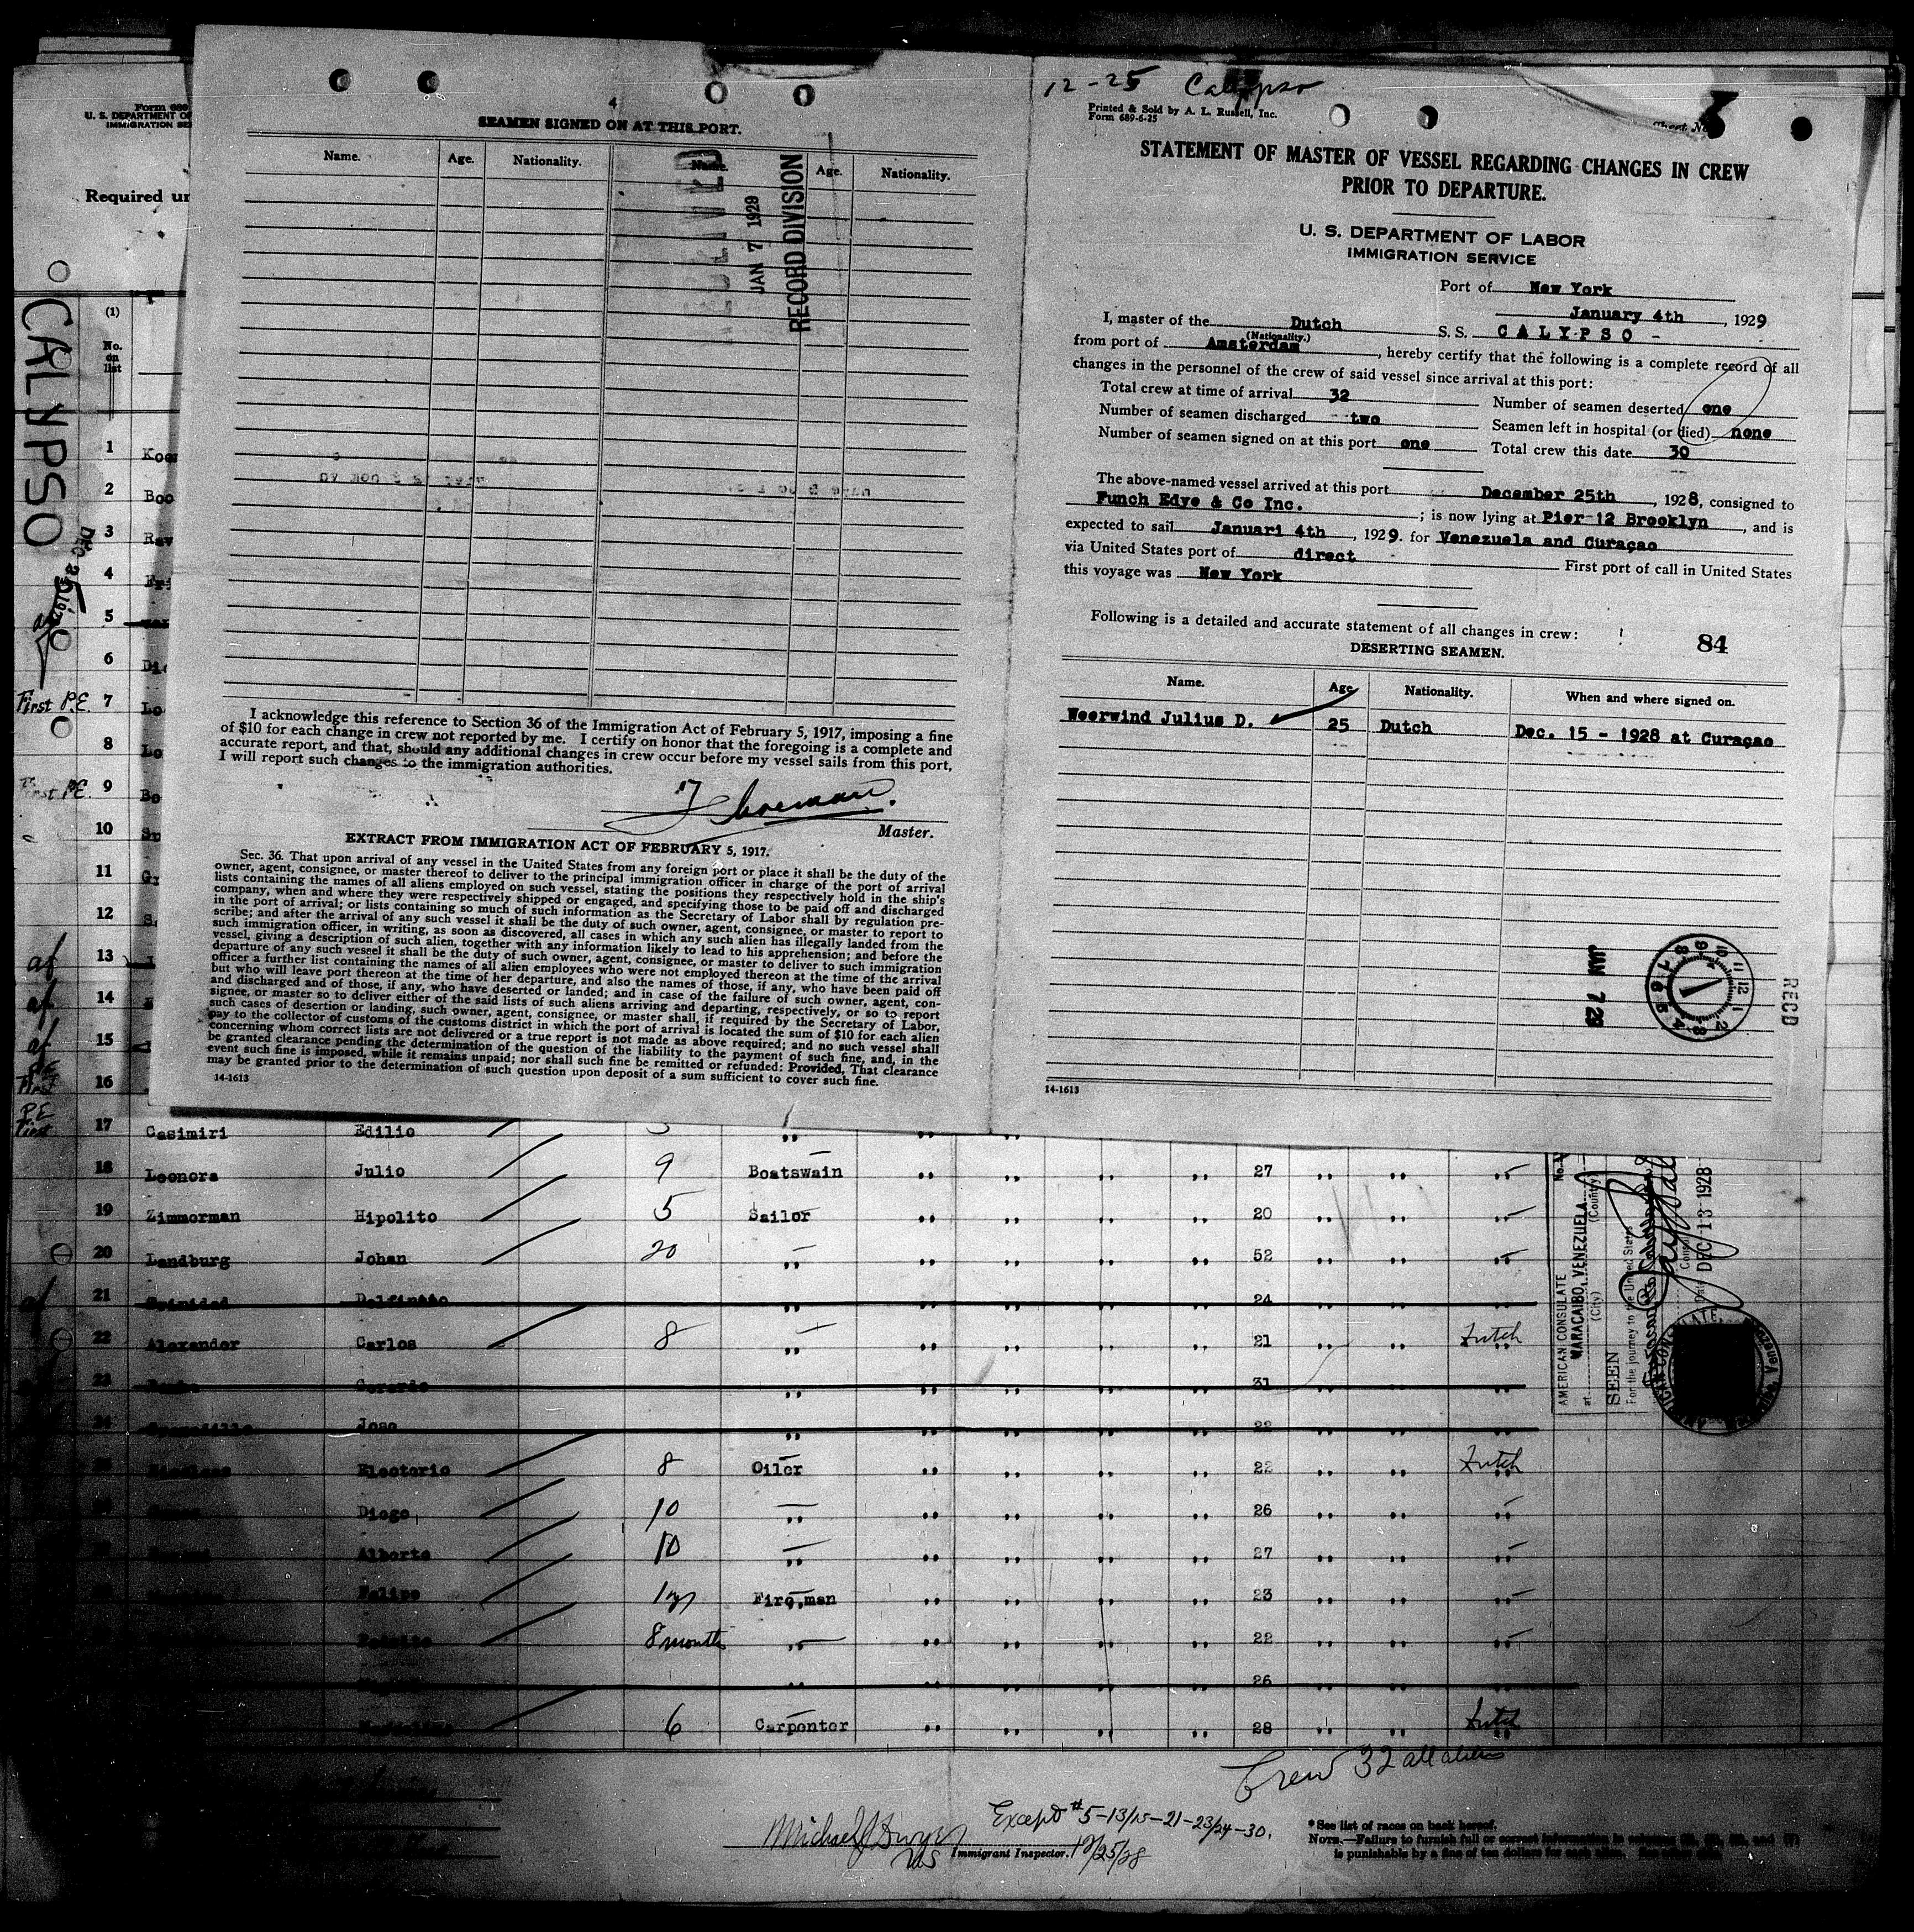 Form 689
U. S. DEPARTMENT OF
IMMIGRATION SE
Required un
(1)
No. on list
CALYPSO
4
SEAMEN SIGNED ON AT THIS PORT.
Name. Age. Nationality. Name. Age. Nationality.
RECEIVED
JAN 7 1929
RECORD DIVISION
I acknowledge this reference to Section 36 of the Immigration Act of February 5, 1917, imposing a fine
of $10 for each change in crew not reported by me. I certify on honor that the foregoing is a complete and
accurate report, and that, should any additional changes in crew occur before my vessel sails from this port,
I will report such changes to the immigration authorities.
Master.
EXTRACT FROM IMMIGRATION ACT OF FEBRUARY 5, 1917.
Sec. 36. That upon arrival of any vessel in the United States from any foreign port or place it shall be the duty of the
owner, agent, consignee, or master thereof to deliver to the principal immigration officer in charge of the port of arrival
lists containing the names of all aliens employed on such vessel, stating the positions they respectively hold in the ship's
company, when and where they were respectively shipped or engaged, and specifying those to be paid off and discharged
in the port of arrival; or lists containing so much of such information as the Secretary of Labor shall by regulation pre-
scribe; and after the arrival of any such vessel it shall be the duty of such owner, agent, consignee, or master to report to
such immigration officer, in writing, as soon as discovered, all cases in which any such alien has illegally landed from the
vessel, giving a description of such alien, together with any information likely to lead to his apprehension; and before the
departure of any such vessel it shall be the duty of such owner, agent, consignee, or master to deliver to such immigration
officer a further list containing the names of all alien employees who were not employed thereon at the time of the arrival
but who will leave port thereon at the time of her departure, and also the names of those, if any, who have been paid off
and discharged and of those, if any, who have deserted or landed; and in case of the failure of such owner, agent, con-
signee, or master so to deliver either of the said lists of such aliens arriving and departing, respectively, or so to report
such cases of desertion or landing, such owner, agent, consignee, or master shall, if required by the Secretary of Labor,
pay to the collector of customs of the customs district in which the port of arrival is located the sum of $10 for each alien
concerning whom correct lists are not delivered or a true report is not made as above required; and no such vessel shall
be granted clearance pending the determination of the question of the liability to the payment of such fine, and, in the
event such fine is imposed, while it remains unpaid; nor shall such fine be remitted or refunded: Provided, That clearance
may be granted prior to the determination of such question upon deposit of a sum sufficient to cover such fine.
14-1613
12-25 Calypso
Printed & Sold by A. L. Russell, Inc.
Form 689-6-25
Sheet No. 3
STATEMENT OF MASTER OF VESSEL REGARDING CHANGES IN CREW
PRIOR TO DEPARTURE.
U. S. DEPARTMENT OF LABOR
IMMIGRATION SERVICE
Port of New York
January 4th, 1929
I, master of the Dutch S.S. CALYPSO -
(Nationality.)
from port of Amsterdam, hereby certify that the following is a complete record of all
changes in the personnel of the crew of said vessel since arrival at this port:
Total crew at time of arrival 32 Number of seamen deserted one
Number of seamen discharged two Seamen left in hospital (or died) none
Number of seamen signed on at this port one Total crew this date 30
The above-named vessel arrived at this port December 25th, 1928, consigned to
Funch Edye & Co Inc. ; is now lying at Pier 12 Brooklyn, and is
expected to sail Januari 4th, 1929. for Venezuela and Curaçao
via United States port of direct First port of call in United States
this voyage was New York
Following is a detailed and accurate statement of all changes in crew:
84
DESERTING SEAMEN.
Name. Age Nationality. When and where signed on.
Weerwind Julius D. 25 Dutch Dec. 15 - 1928 at Curaçao
JAN 7 29
RECD
14-1613
1 Koe
2 Boo
3 Rav
4 Fri
5
6 Die
First P.E. 7 Lo
8 Lo
First P.E. 9 Bo
10
11 Gr
12 S
af 13
af 14
af 15
First 16
P.E.
First 17 Casimiri Edilio
18 Leonora Julio 9 Boatswain 27
19 Zimmerman Hipolito 5 Sailor 20
20 Landburg Johan 20 52
af 21 Trinidad Delfinito 24
22 Alexander Carlos 8 21 Dutch
23 Gerardo 31
24 Jose 22
Electerio 8 Oiler 22 Dutch
Diego 10 26
Alberto 10 27
Felipe 1 yr Fireman 23
8 months 22
26
6 Carpenter 28 Dutch
No.
AMERICAN CONSULATE
at MARACAIBO, VENEZUELA
(City) (Country)
SEEN
For the journey to the United States
Consul
Date DEC 13 1928
Crew 32 all aliens
Except #5-13/15-21-23/24-30.
Michael J Dwyer
Immigrant Inspector. 12/25/28
* See list of races on back hereof.
NOTE.—Failure to furnish full or correct information in columns
is punishable by a fine of ten dollars for each alien.